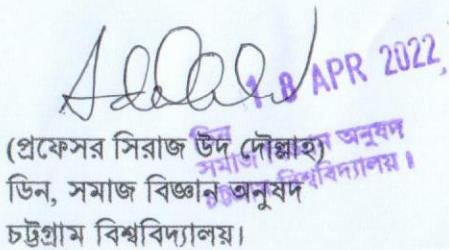 18 APR 2022
(প্রফেসর সিরাজ উদ দৌল্লাহ)
ডিন, সমাজ বিজ্ঞান অনুষদ
চট্টগ্রাম বিশ্ববিদ্যালয়।
ডিন
সমাজ বিজ্ঞান অনুষদ
বিশ্ববিদ্যালয়।